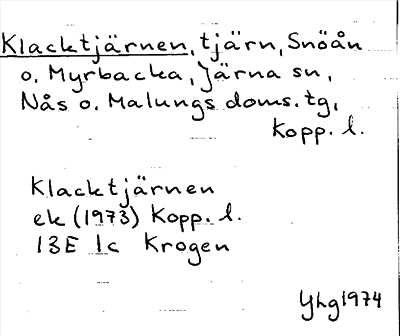 Klacktjärnen, tjärn, Snöån
o. Myrbacka, Järna sn,
Nås o. Malungs doms. tg,
Kopp. l.
Klacktjärnen
ek (1973) Kopp. l.
13E 1c Krogen
Yhg 1974